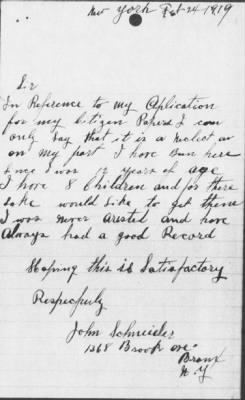 New York Feb-24-1919
Sir
In Reference to my Aplication
for my Citizen Papers I can
only say that it is a neglect
on my part I have bun here
since I was 12 years of age
I have 8 Children and for there
sake would like to get them
I was never arested and have
Always had a good Record
Hoping this is Satisfactory
Respecfuly
John Schneider
1368 Brook ave
Bronx
N.Y